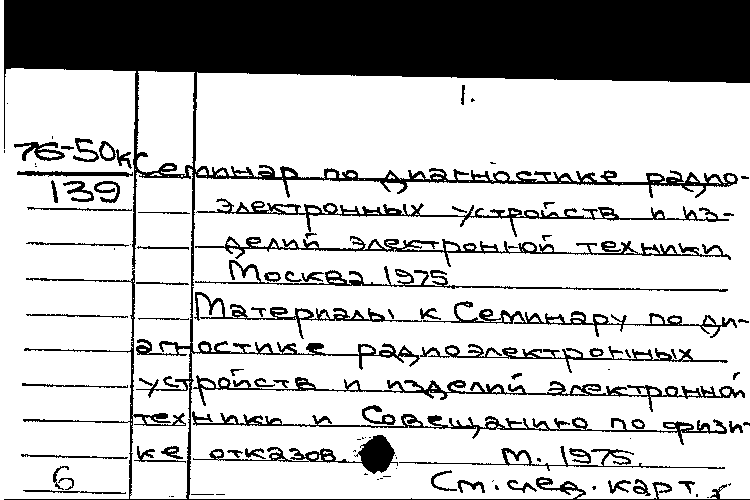 1.
76-50к
139
Семинар по диагностике радио-
электронных устройств и из-
делий электронной техники.
Москва. 1975.
Материалы к Семинару по ди-
агностике радиоэлектронных
устройств и изделий электронной
техники и Совещанию по физи-
ке отказов. М., 1975.
6
См. след. карт.